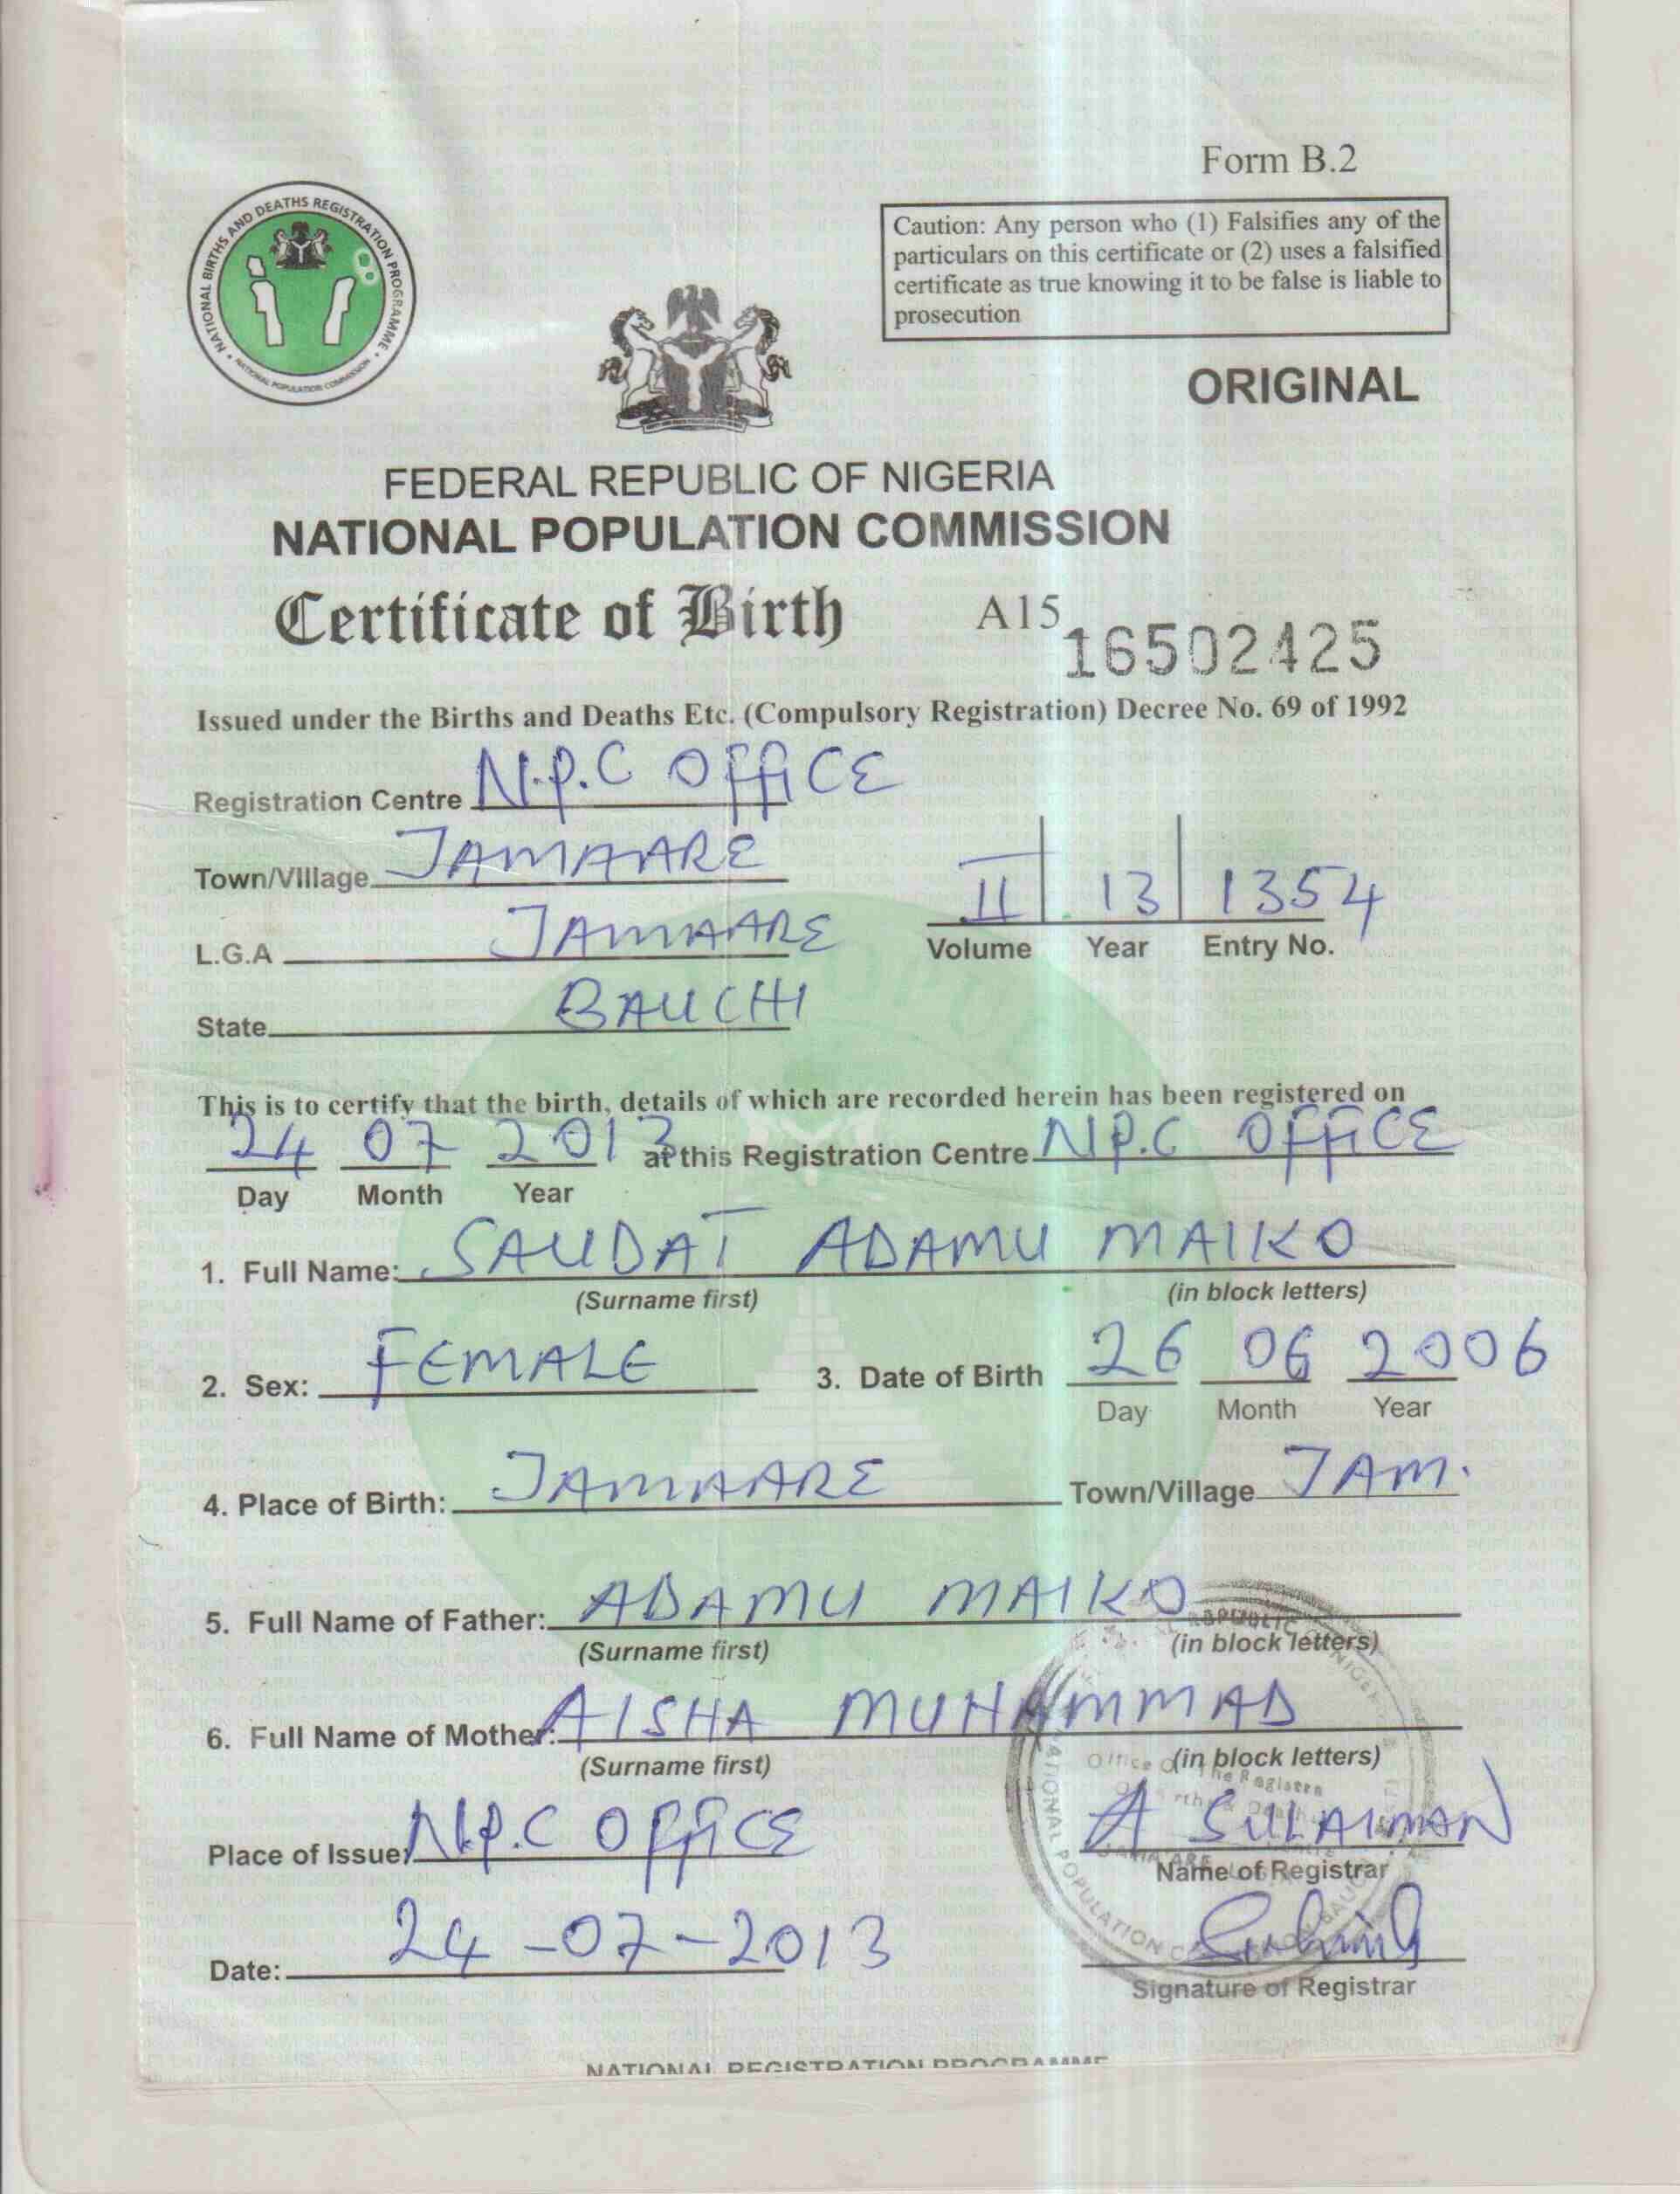 Form B.2
NATIONAL BIRTHS AND DEATHS REGISTRATION PROGRAMME
NATIONAL POPULATION COMMISSION
Caution: Any person who (1) Falsifies any of the
particulars on this certificate or (2) uses a falsified
certificate as true knowing it to be false is liable to
prosecution
ORIGINAL
FEDERAL REPUBLIC OF NIGERIA
NATIONAL POPULATION COMMISSION
Certificate of Birth A15 16502425
Issued under the Births and Deaths Etc. (Compulsory Registration) Decree No. 69 of 1992
Registration Centre N.P.C OFFICE
Town/Village JAMAARE
II 13 1354
L.G.A JAMAARE
Volume Year Entry No.
State BAUCHI
This is to certify that the birth, details of which are recorded herein has been registered on
24 07 2013 at this Registration Centre N.P.C OFFICE
Day Month Year
1. Full Name: SAUDAT ADAMU MAIKO
(Surname first) (in block letters)
2. Sex: FEMALE 3. Date of Birth 26 06 2006
Day Month Year
4. Place of Birth: JAMAARE Town/Village JAM.
5. Full Name of Father: ADAMU MAIKO
(Surname first) (in block letters)
6. Full Name of Mother: AISHA MUHAMMAD
(Surname first) (in block letters)
Place of Issue: N.P.C OFFICE A SULAIMAN
Name of Registrar
Date: 24-07-2013
Signature of Registrar
NATIONAL REGISTRATION PROGRAMME